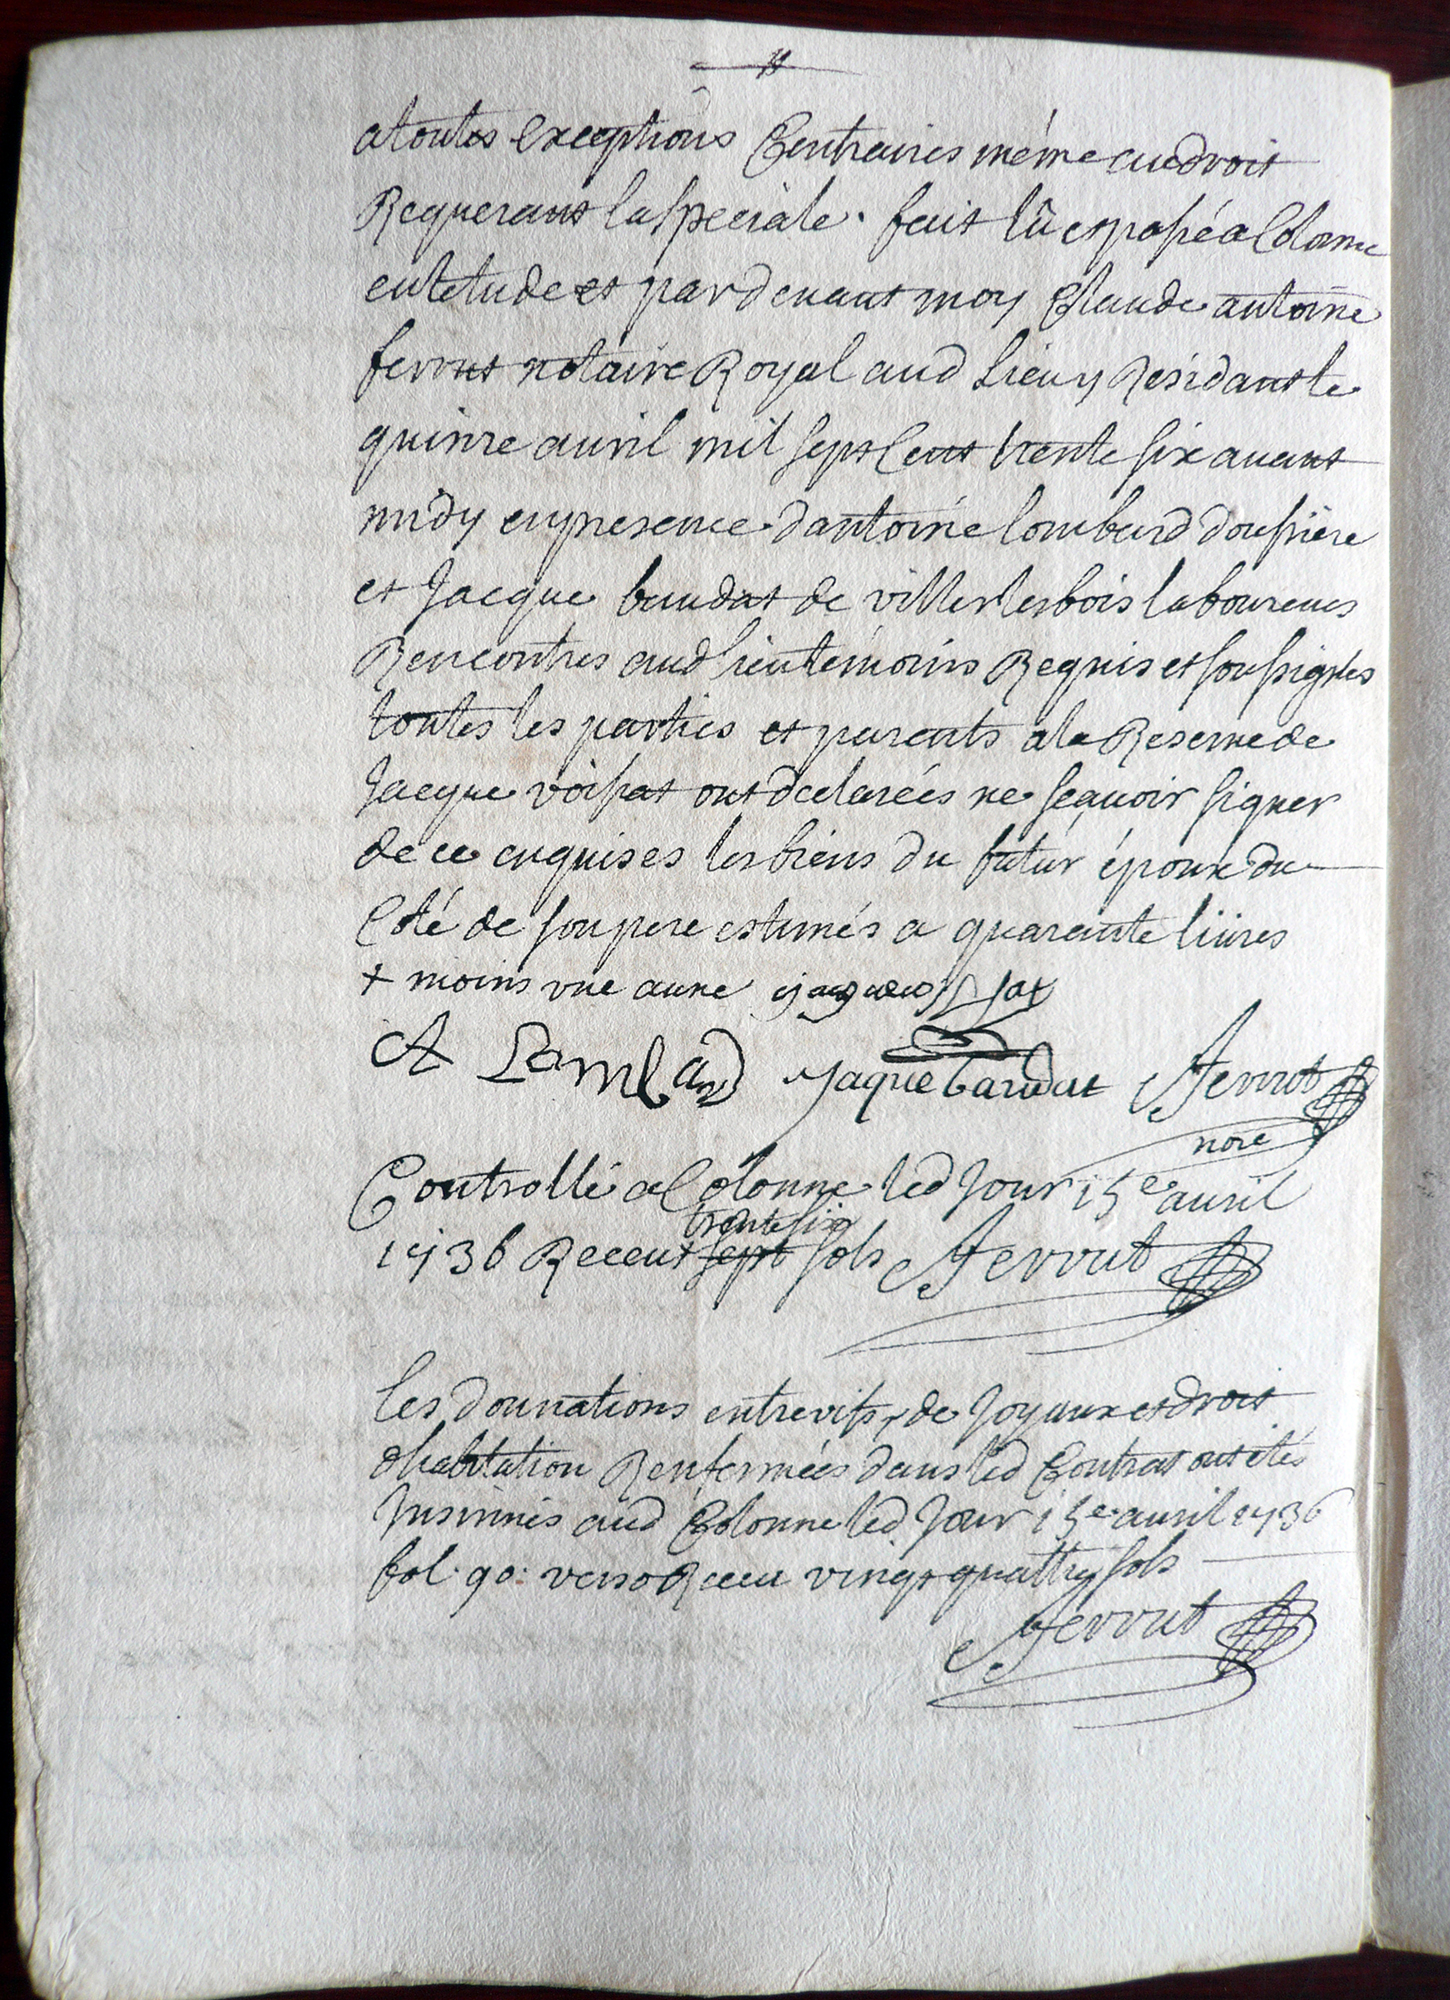 atoutes exceptions Contraires même audroit
Requerant la speciale. fait lû et passé a Colonne
en letude et pardevant moy Claude antoine
ferrut notaire Royal aud Lieu y Residant le
quinze avril mil sept Cent trente six avant
midy en presence dantoine lombard doussiere
et Jacque baudat de villerlesbois laboureurs
Rencontres aud lieu temoins Requis et soussignés
toutes les parties et parents ala Reserve de
Jacque voisat ont declareés ne sçavoir signer
de ce enquises les biens du futur époux du
Coté de son pere estimés a quarante livres
+ moins une aune
A Lombard Jaque baudat ferrut
nore
Controllé a Colonne led Jour 15e avril
trente six
1736 Receut sept sols ferrut
les donnations entrevifs, de Joyaux et droit
dhabitation Renfermées dans led Contrat ont étés
Insinués aud Colonne led Jour 15e avril 1736
fol. 90: verso Receu vingt quattre sols
ferrut